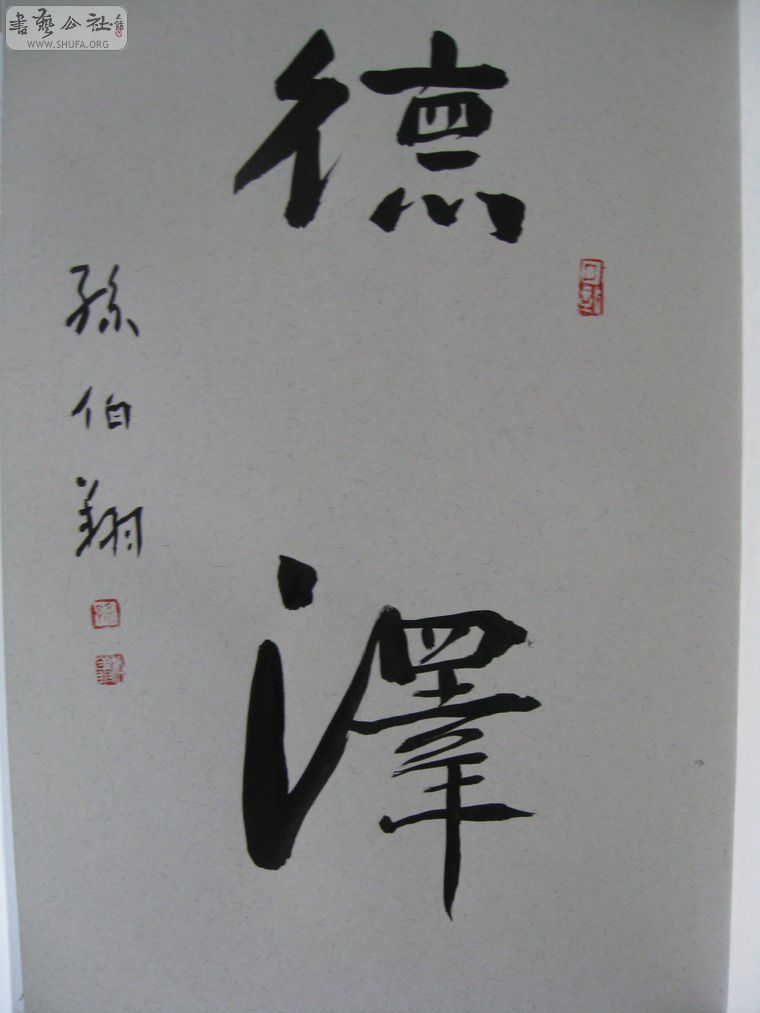 書藝公社
WWW.SHUFA.ORG
德澤
孫伯翔